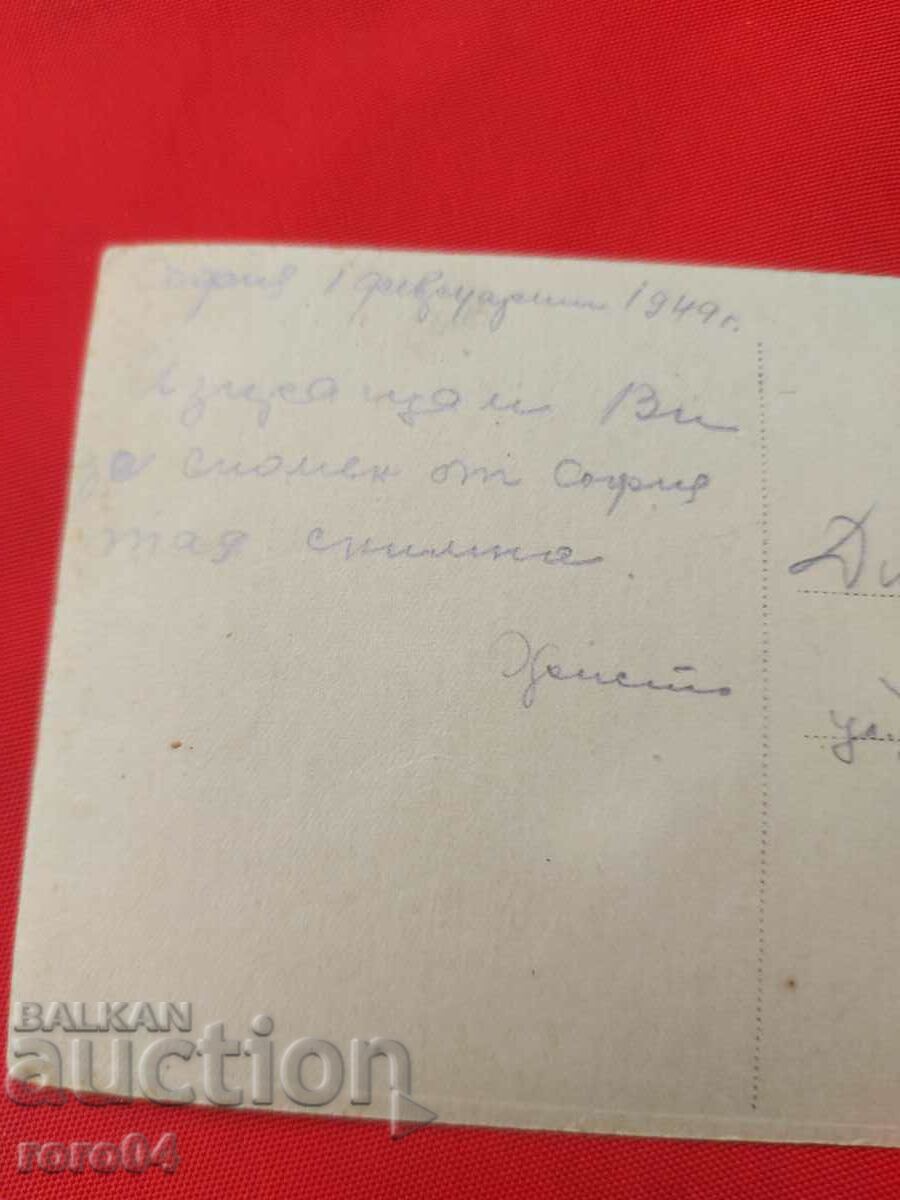 София 1 февруарии 1949 г.
Изпращам Ви
за спомен от София
тая снимка.
Христо
BALKAN
auction
roro04